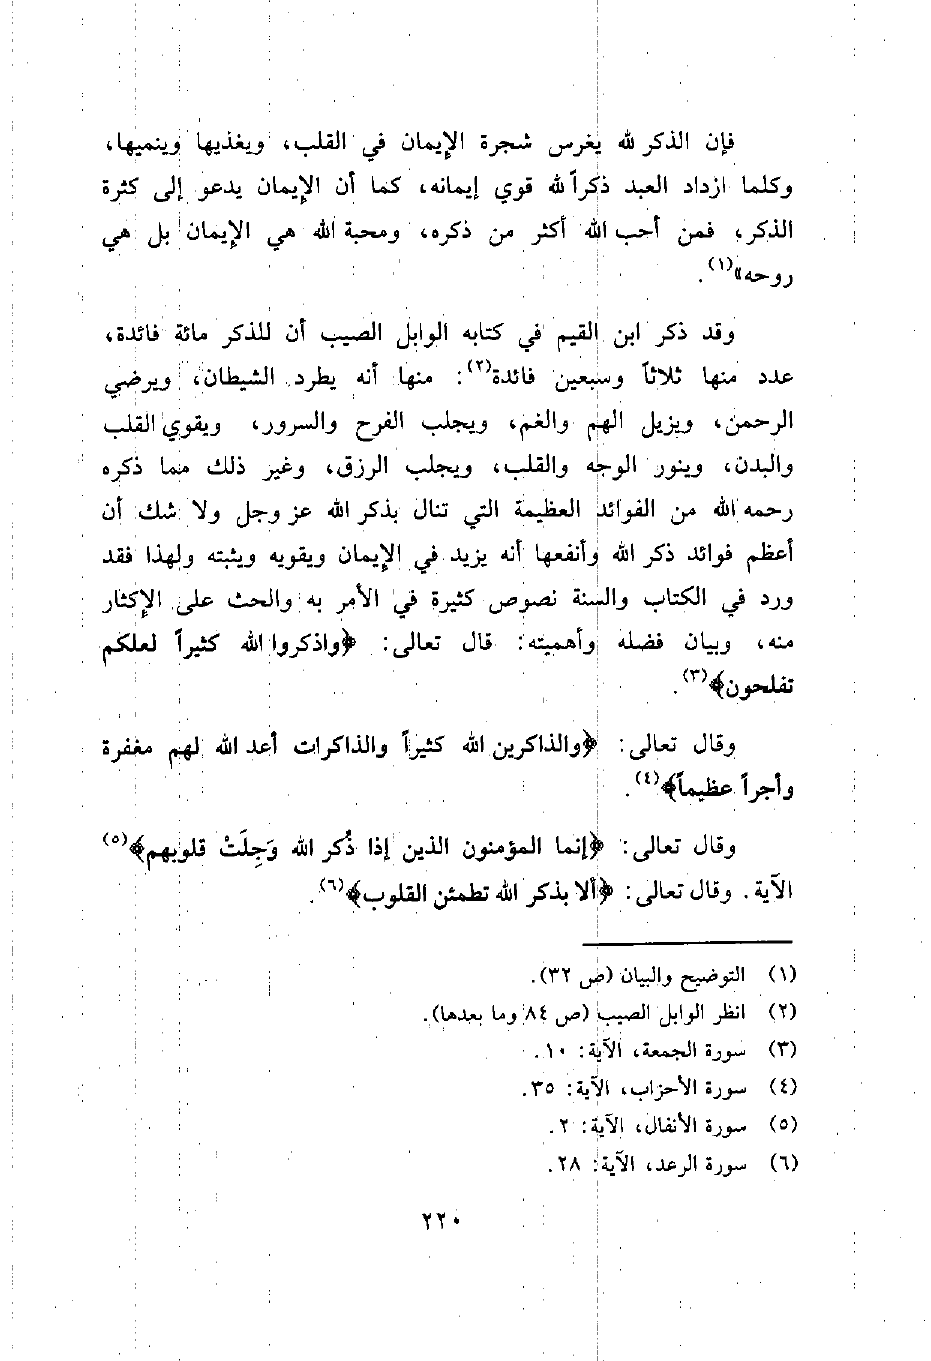 فإن الذكر لله يغرس شجرة الإيمان في القلب، ويغذيها وينميها،
وكلما ازداد العبد ذكراً لله قوي إيمانه، كما أن الإيمان يدعو إلى كثرة
الذكر، فمن أحب الله أكثر من ذكره، ومحبة الله هي الإيمان بل هي
روحه»(١).
وقد ذكر ابن القيم في كتابه الوابل الصيب أن للذكر مائة فائدة،
عدد منها ثلاثاً وسبعين فائدة(٢): منها أنه يطرد الشيطان، ويرضي
الرحمن، ويزيل الهم والغم، ويجلب الفرح والسرور، ويقوي القلب
والبدن، وينور الوجه والقلب، ويجلب الرزق، وغير ذلك مما ذكره
رحمه الله من الفوائد العظيمة التي تنال بذكر الله عز وجل ولا شك أن
أعظم فوائد ذكر الله وأنفعها أنه يزيد في الإيمان ويقويه ويثبته ولهذا فقد
ورد في الكتاب والسنة نصوص كثيرة في الأمر به والحث على الإكثار
منه، وبيان فضله وأهميته: قال تعالى: ﴿واذكروا الله كثيراً لعلكم
تفلحون﴾(٣).
وقال تعالى: ﴿والذاكرين الله كثيراً والذاكرات أعد الله لهم مغفرة
وأجراً عظيماً﴾(٤).
وقال تعالى: ﴿إنما المؤمنون الذين إذا ذُكر الله وَجِلَتْ قلوبهم﴾(٥)
الآية. وقال تعالى: ﴿ألا بذكر الله تطمئن القلوب﴾(٦).
(١) التوضيح والبيان (ص ٣٢).
(٢) انظر الوابل الصيب (ص ٨٤ وما بعدها).
(٣) سورة الجمعة، الآية: ١٠.
(٤) سورة الأحزاب، الآية: ٣٥.
(٥) سورة الأنفال، الآية: ٢.
(٦) سورة الرعد، الآية: ٢٨.
٢٢٠